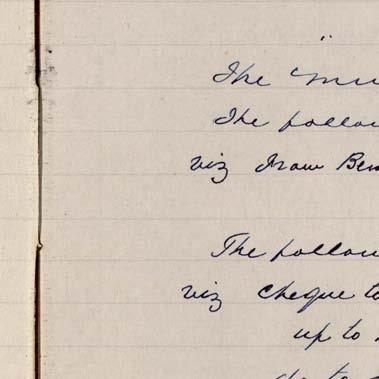 "
The "Min
The follow
viz From Ben
The follow
viz Cheque to
up to
do to